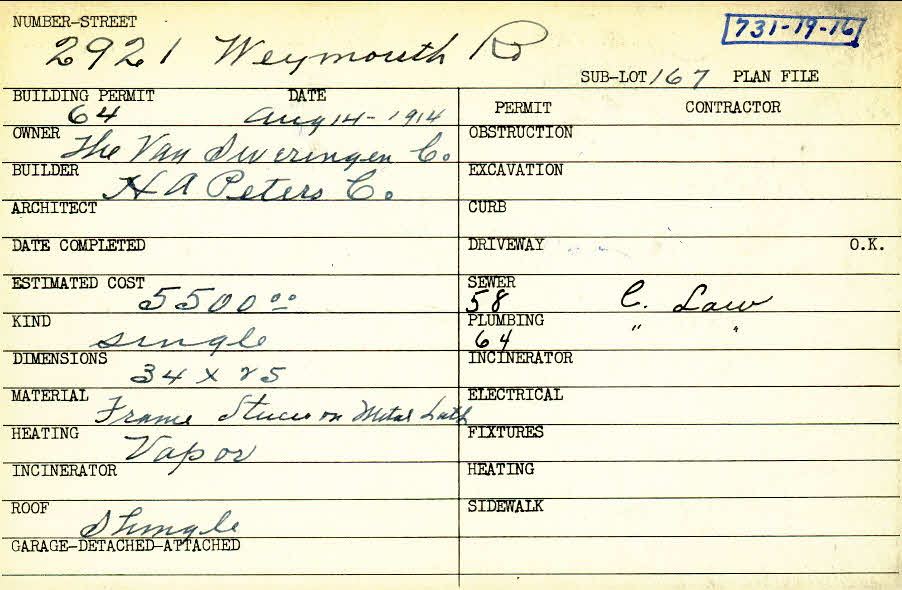 NUMBER-STREET
2921 Weymouth Rd
731-19-16
SUB-LOT 167 PLAN FILE
BUILDING PERMIT DATE
64 Aug 14-1914
PERMIT CONTRACTOR
OWNER The Van Sweringen Co.
OBSTRUCTION
BUILDER H A Peters Co.
EXCAVATION
ARCHITECT
CURB
DATE COMPLETED
DRIVEWAY O.K.
ESTIMATED COST 5500.00
SEWER
58 C. Law
KIND single
PLUMBING
64 " "
DIMENSIONS 34 x 25
INCINERATOR
MATERIAL Frame Stucco on Metal Lath
ELECTRICAL
HEATING Vapor
FIXTURES
INCINERATOR
HEATING
ROOF Shingle
SIDEWALK
GARAGE-DETACHED-ATTACHED